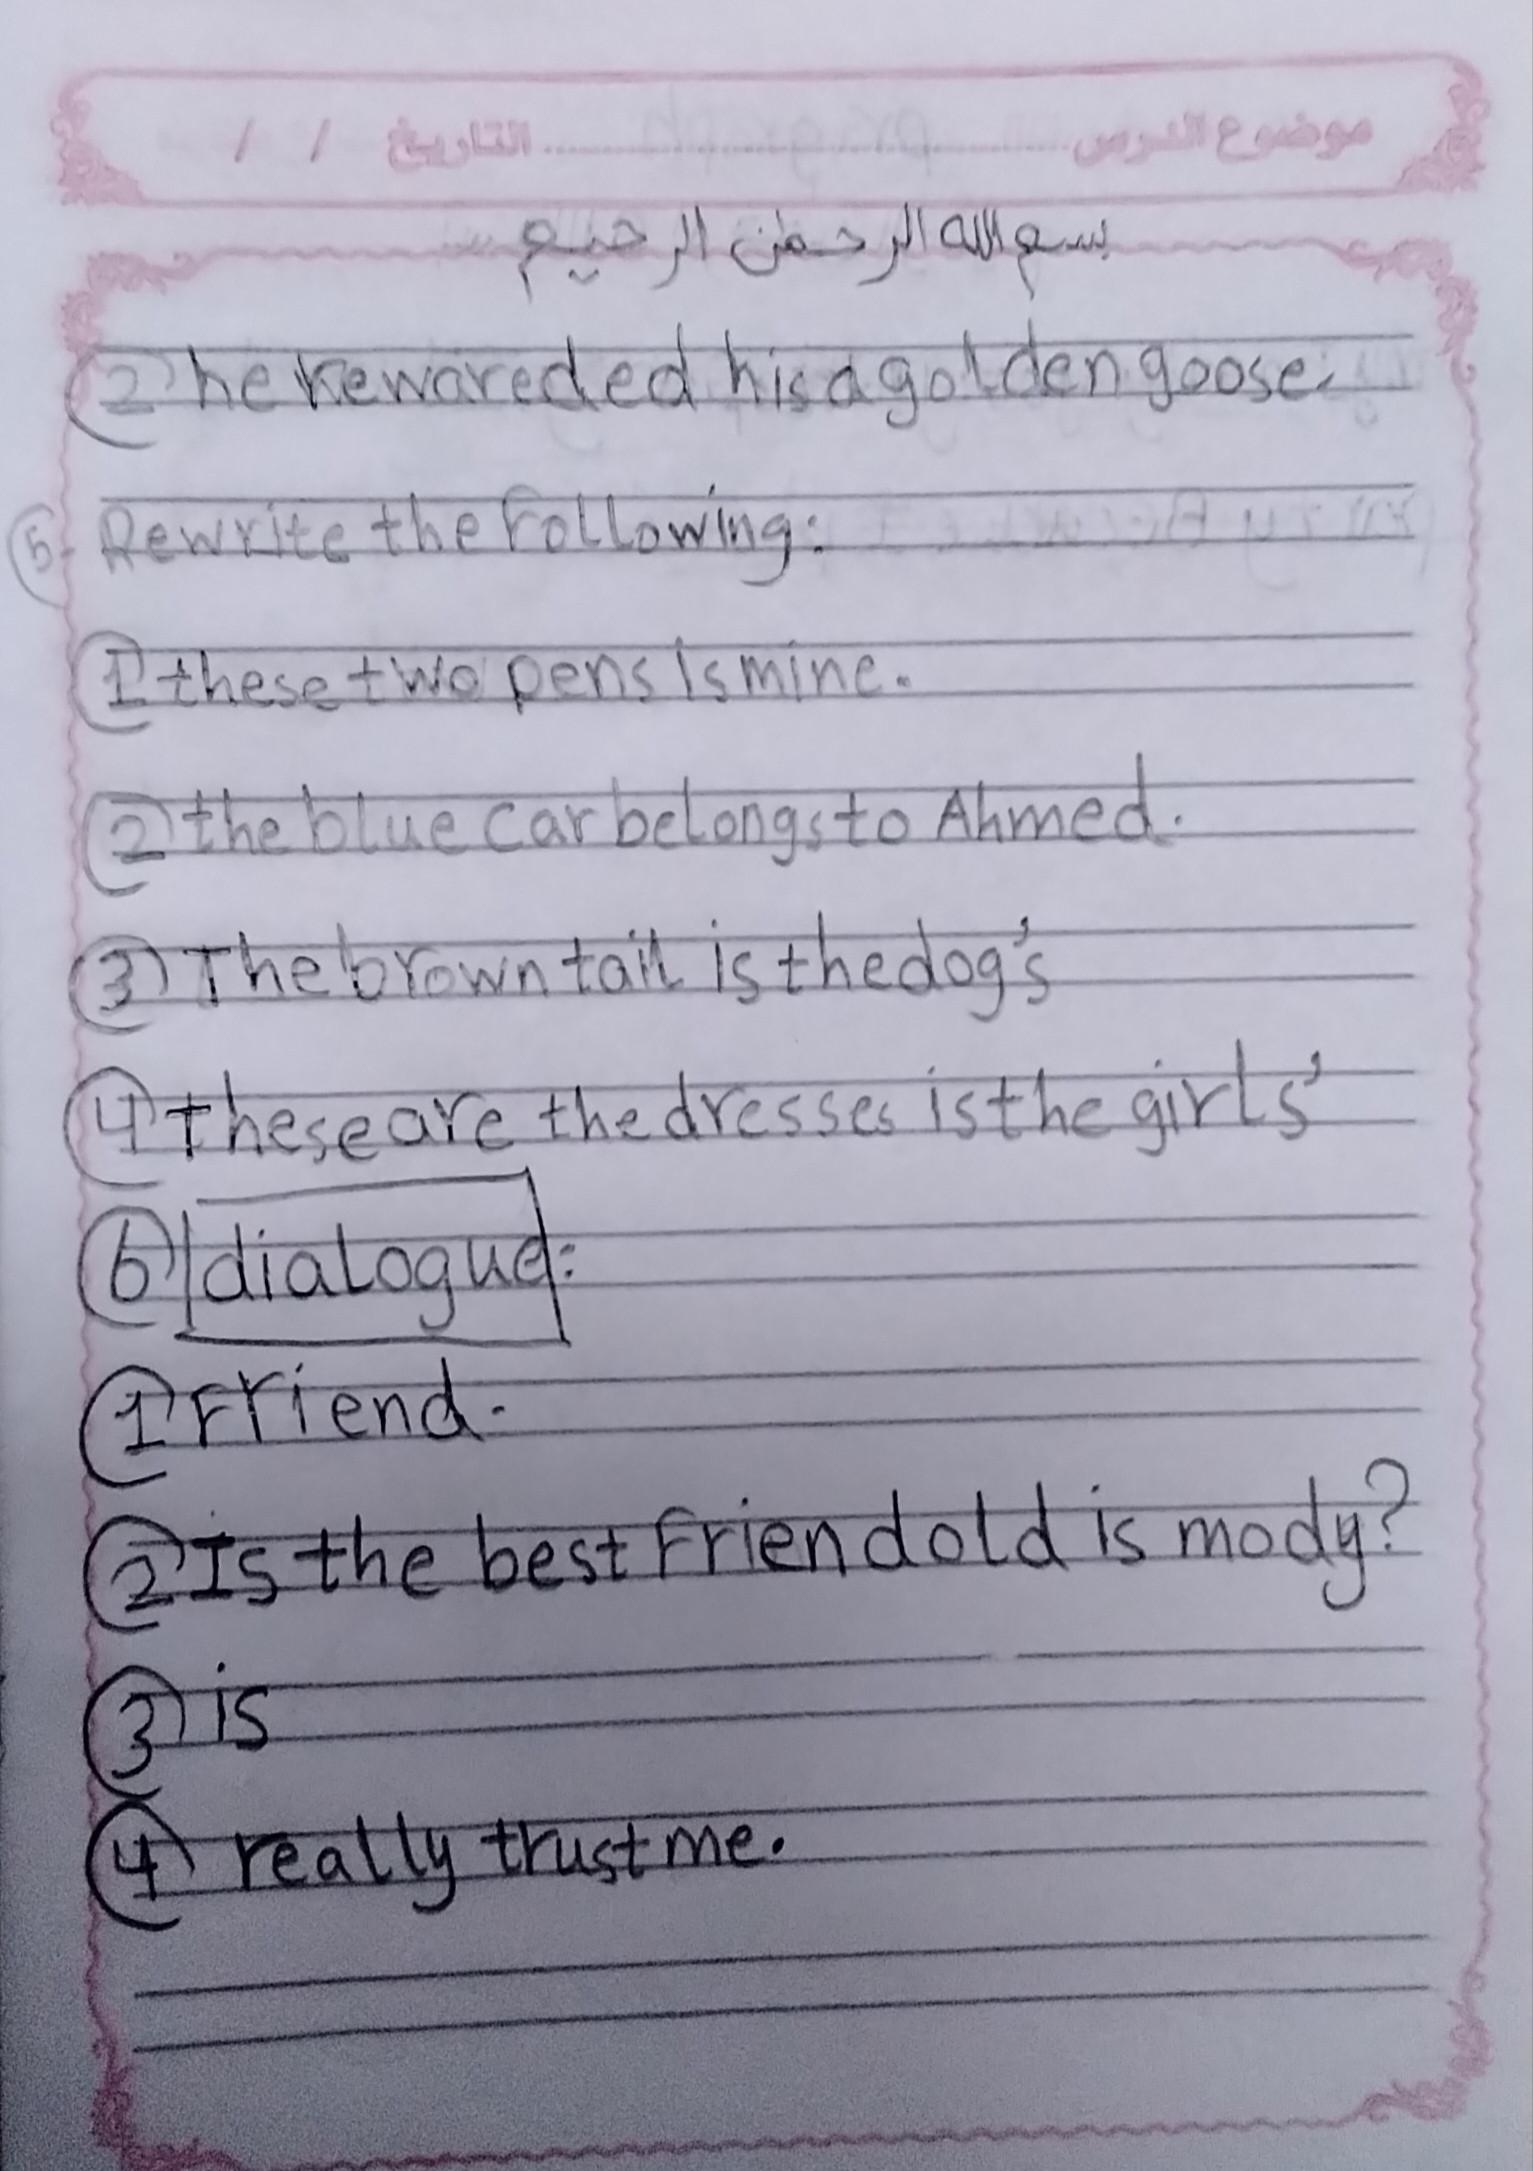 موضوع الدرس ........................ التاريخ / /
بسم الله الرحمن الرحيم
2 he rewareded his a golden goose.
5- Rewrite the Following:
1 these two pens is mine.
2 the blue car belongs to Ahmed.
3 The brown tail is the dog's
4 these are the dresses is the girls'
6 dialogue:
1 Friend.
2 Is the best Friend old is mody?
3 is
4 really trust me.